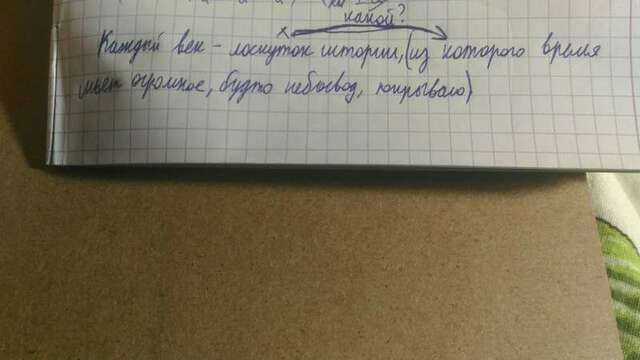 какой?
Каждый век - лоскуток истории, (из которого время
шьёт огромное, будто небосвод, покрывало)